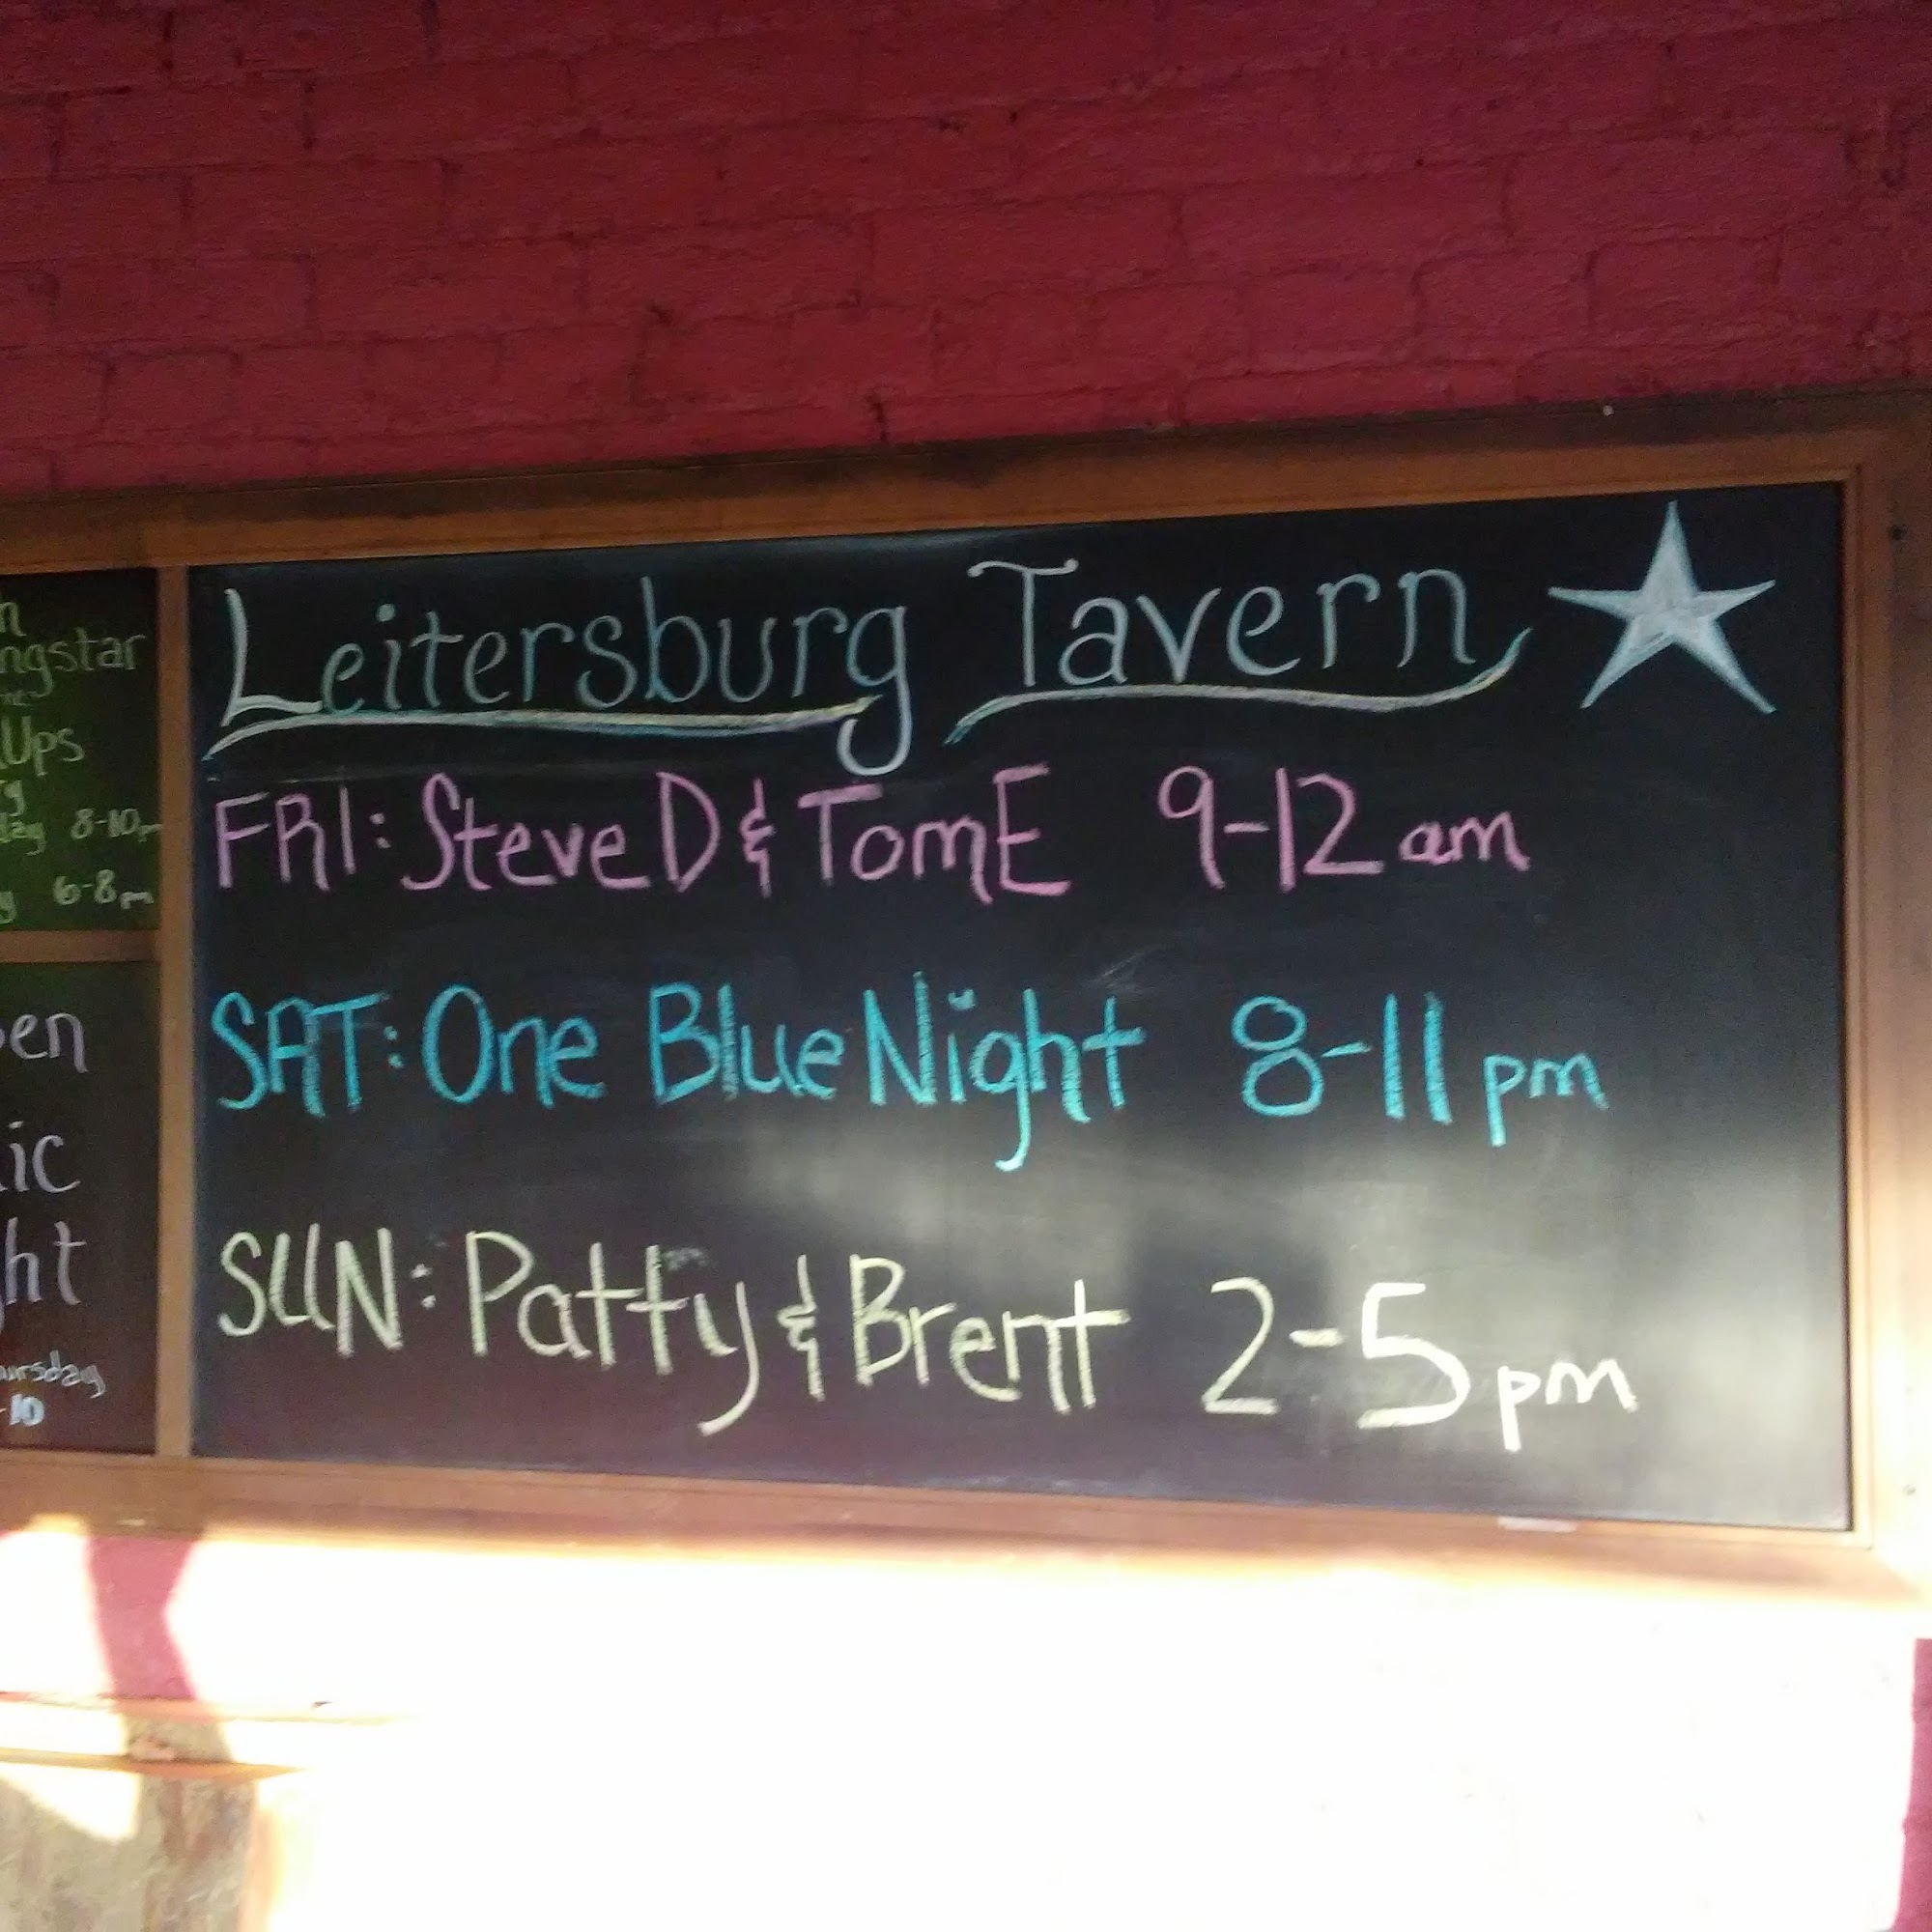 ngstar
Ups
8-10
6-8pm
ic
ht
10
Leitersburg Tavern
FRI: Steve D & Tom E 9-12 am
SAT: One Blue Night 8-11 pm
SUN: Patty & Brent 2-5 pm